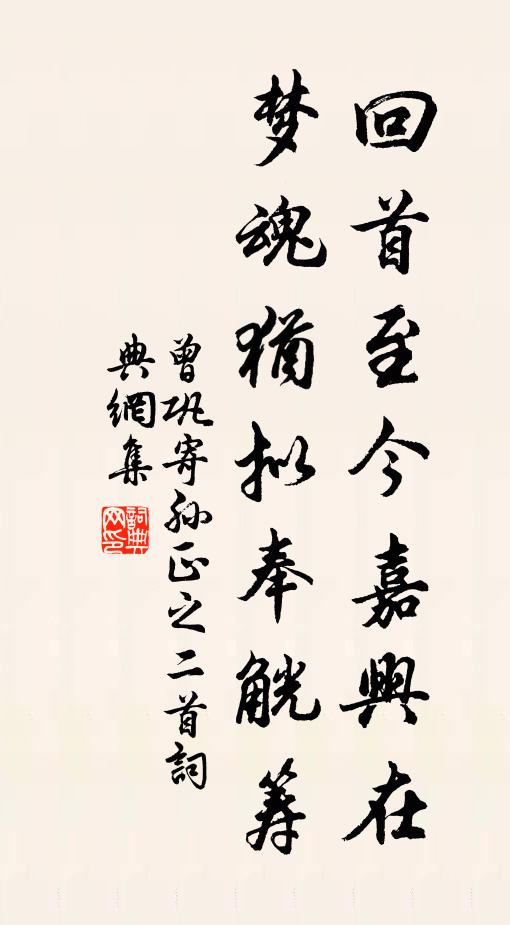 回首至今嘉興在
梦魂猶拟奉觥筹
曾巩寄孙正之二首詞
典網集
詞典网印